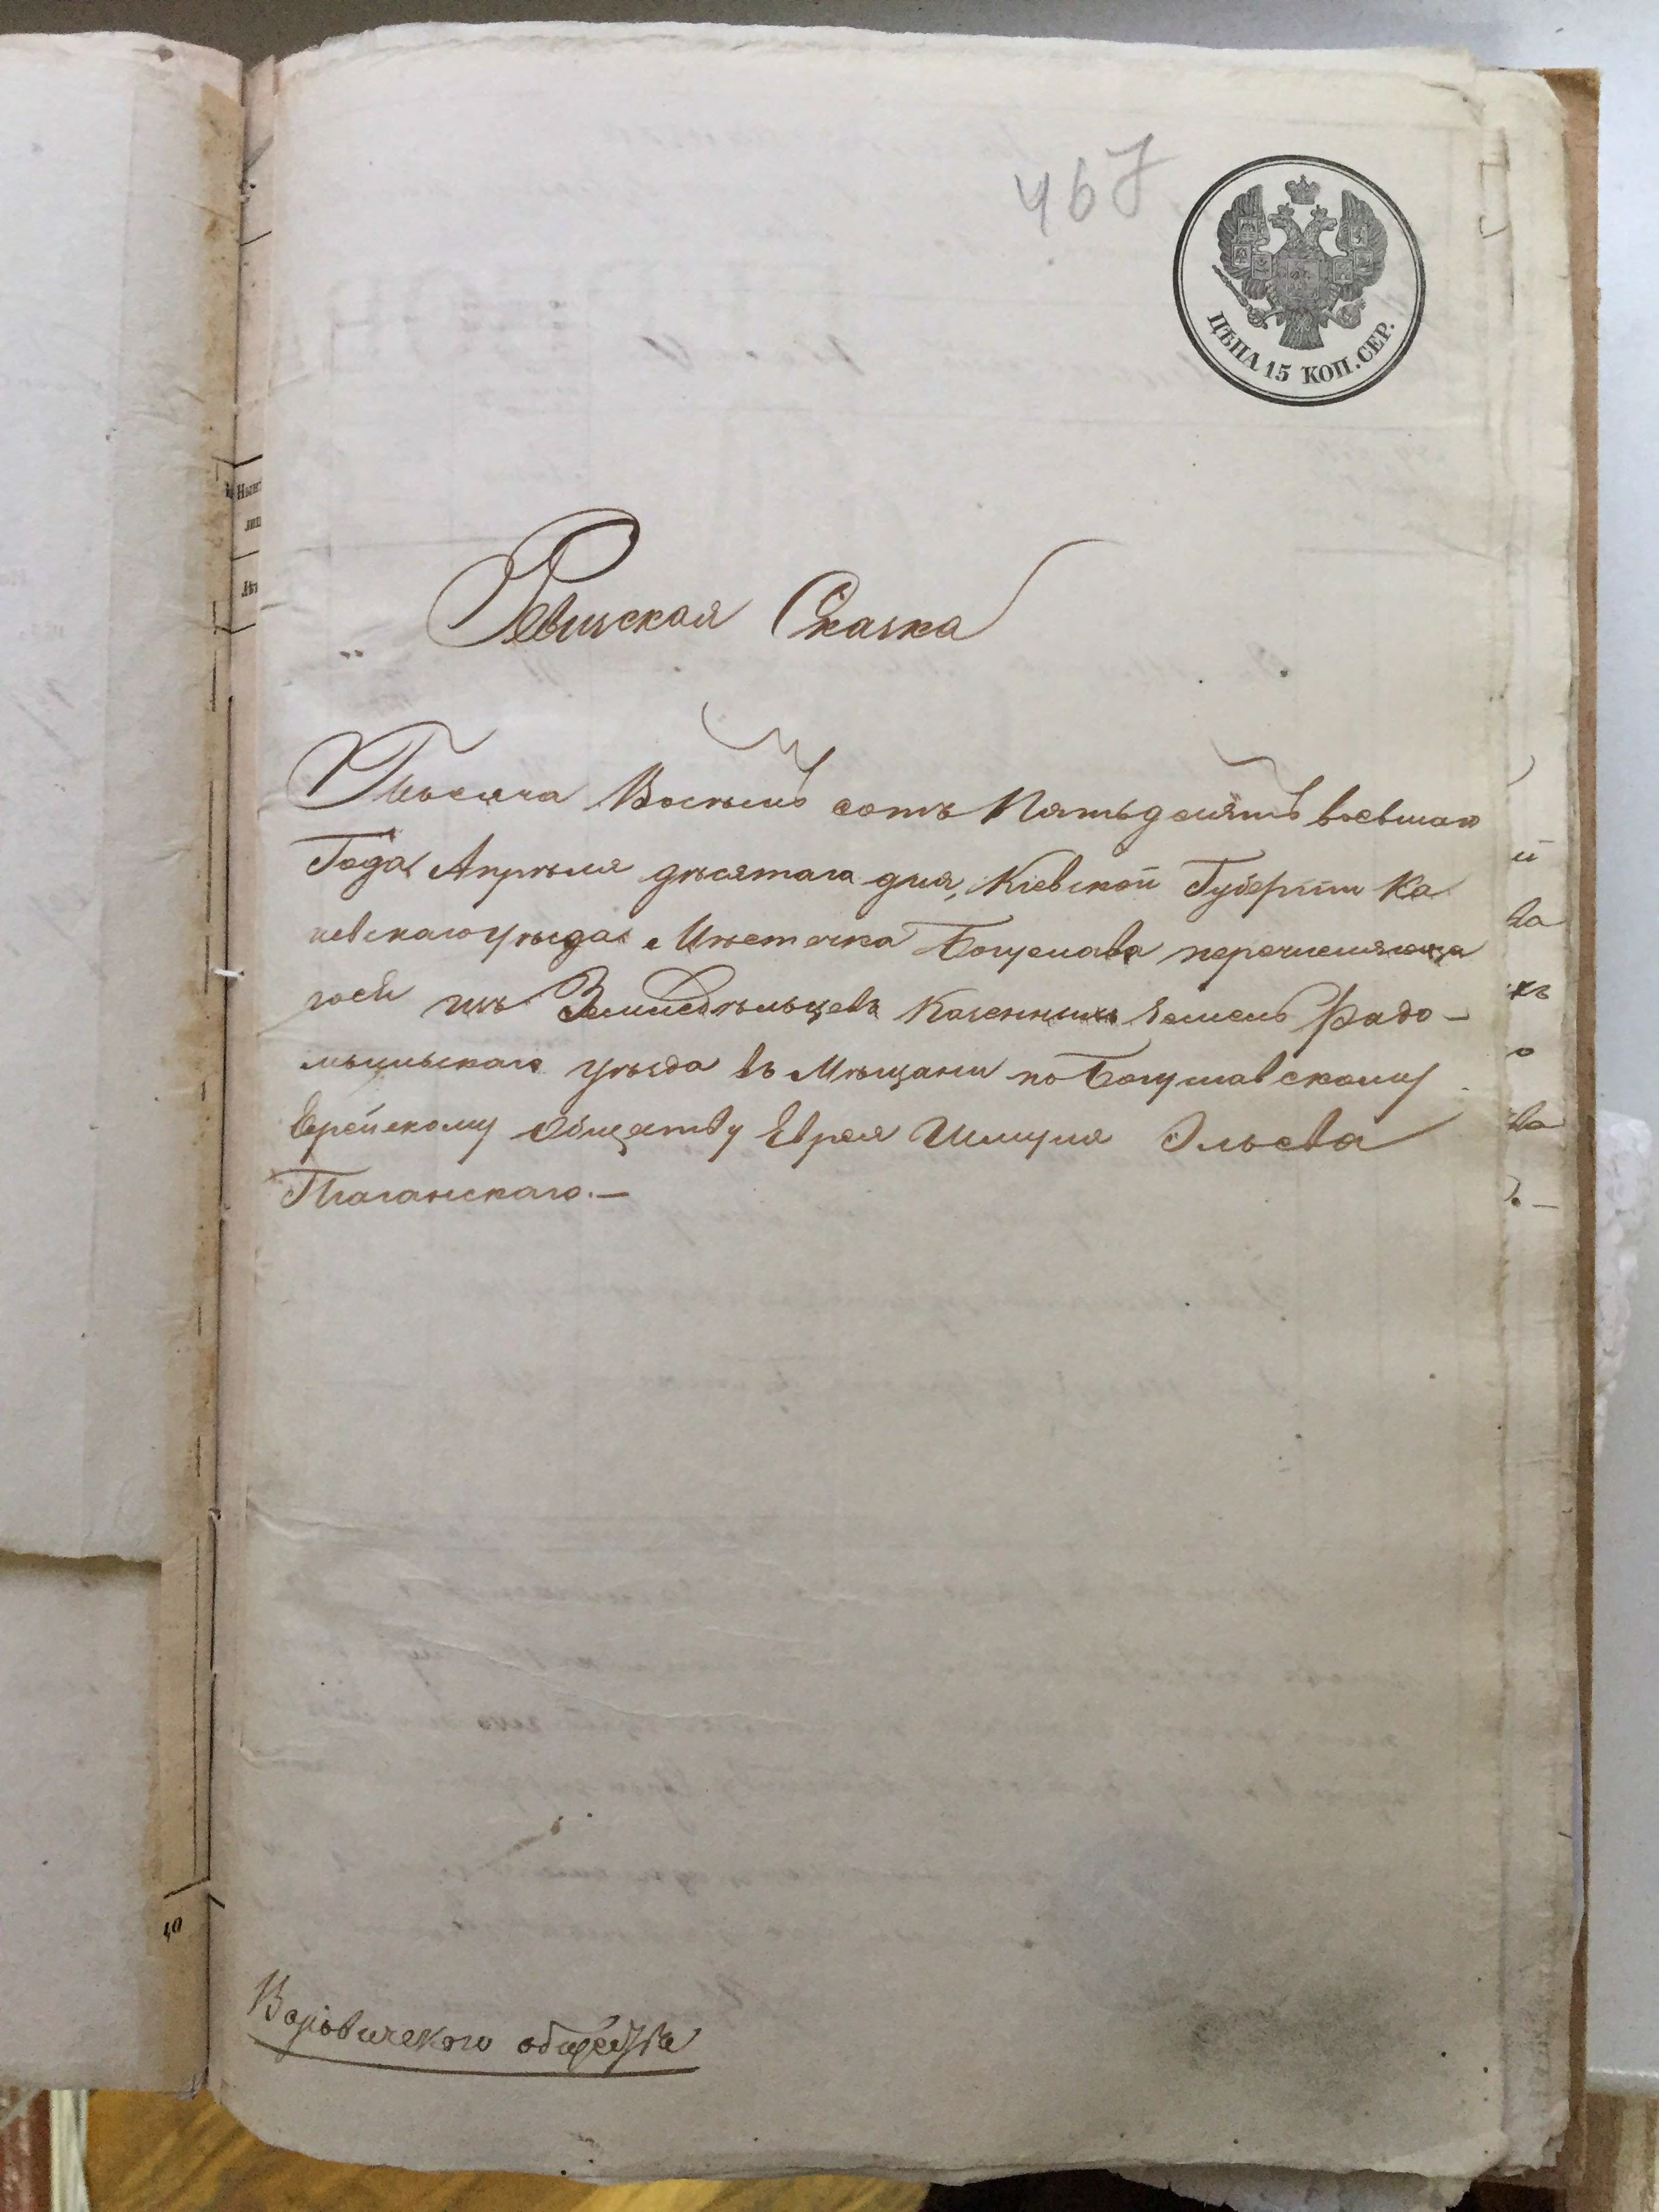 467
ЦѢНА 15 КОП. СЕР.
Ревизская Сказка
Тысяча Восемь сотъ Пятьдесятъ восьмаго
Года Апрѣля десятаго дня, Кіевской Губерніи Ка
невскаго уѣзда Мѣстечка Богуслава перечисляюща
гося изъ Земледѣльцевъ Казенныхъ земель Радо-
мысльскаго уѣзда въ Мѣщани по Богуславскому
Еврейскому Обществу Еврея Шмуля Эльева
Таганскаго.—
общества